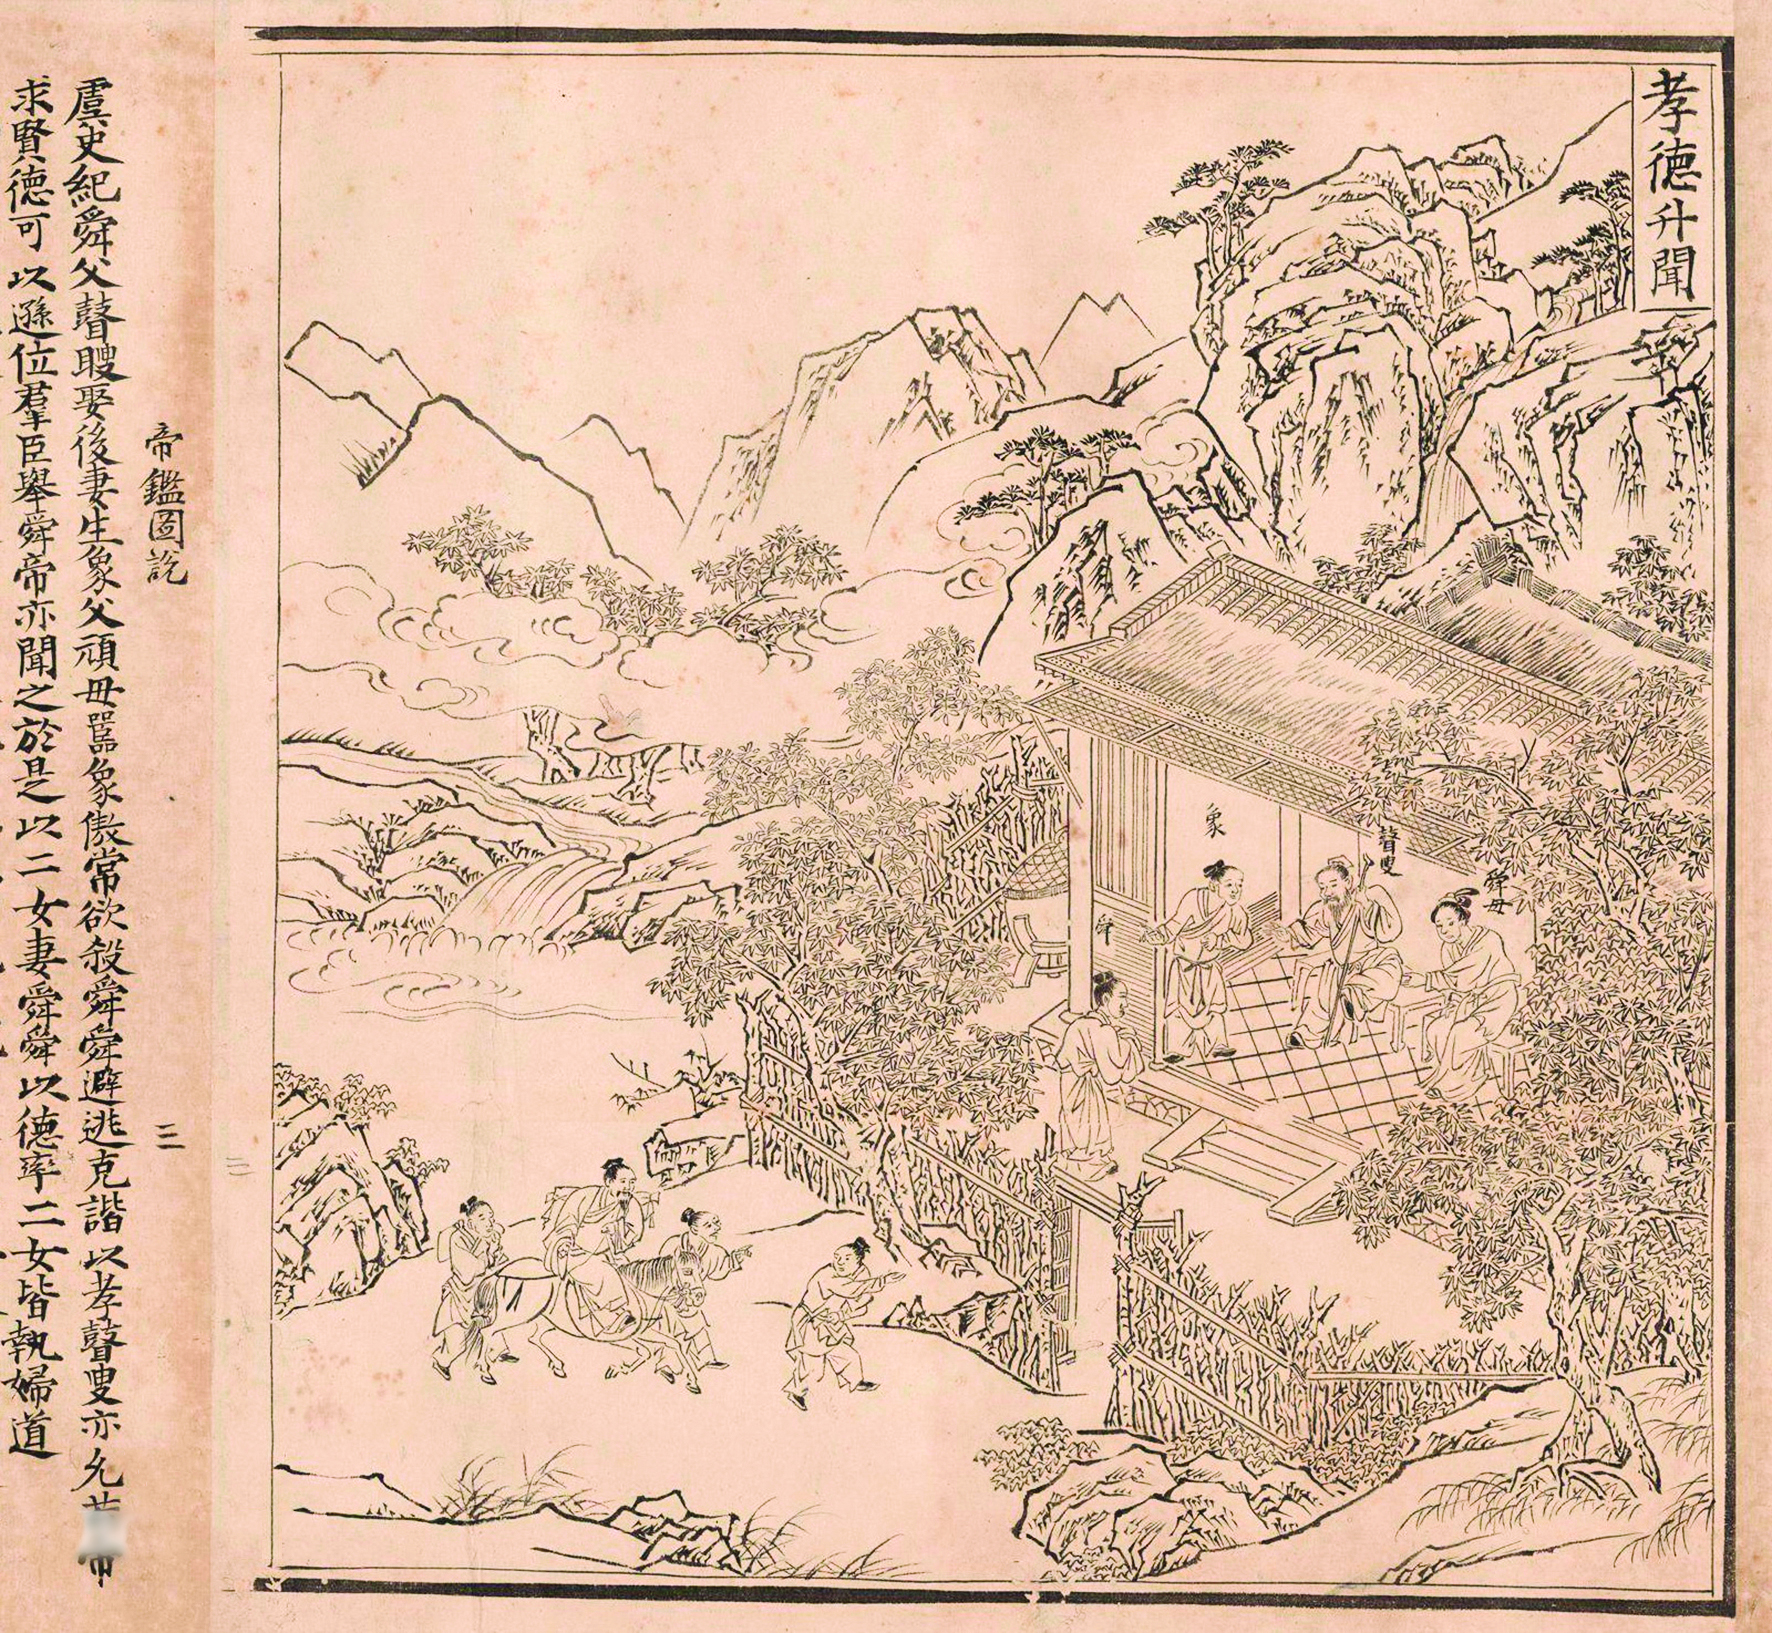 孝德升聞
舜母
瞽叟
象
舜
帝鑑圖說
三
虞史紀舜父瞽瞍娶後妻生象父頑母嚚象傲常欲殺舜舜避逃克諧以孝瞽叟亦允
求賢德可以遜位羣臣舉舜帝亦聞之於是以二女妻舜舜以德率二女皆執婦道